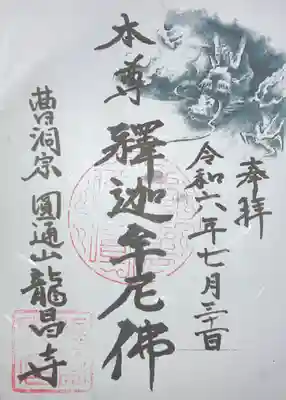 奉拝
令和六年七月三十日
本尊
釋迦牟尼佛
曹洞宗 圓通山 龍昌寺